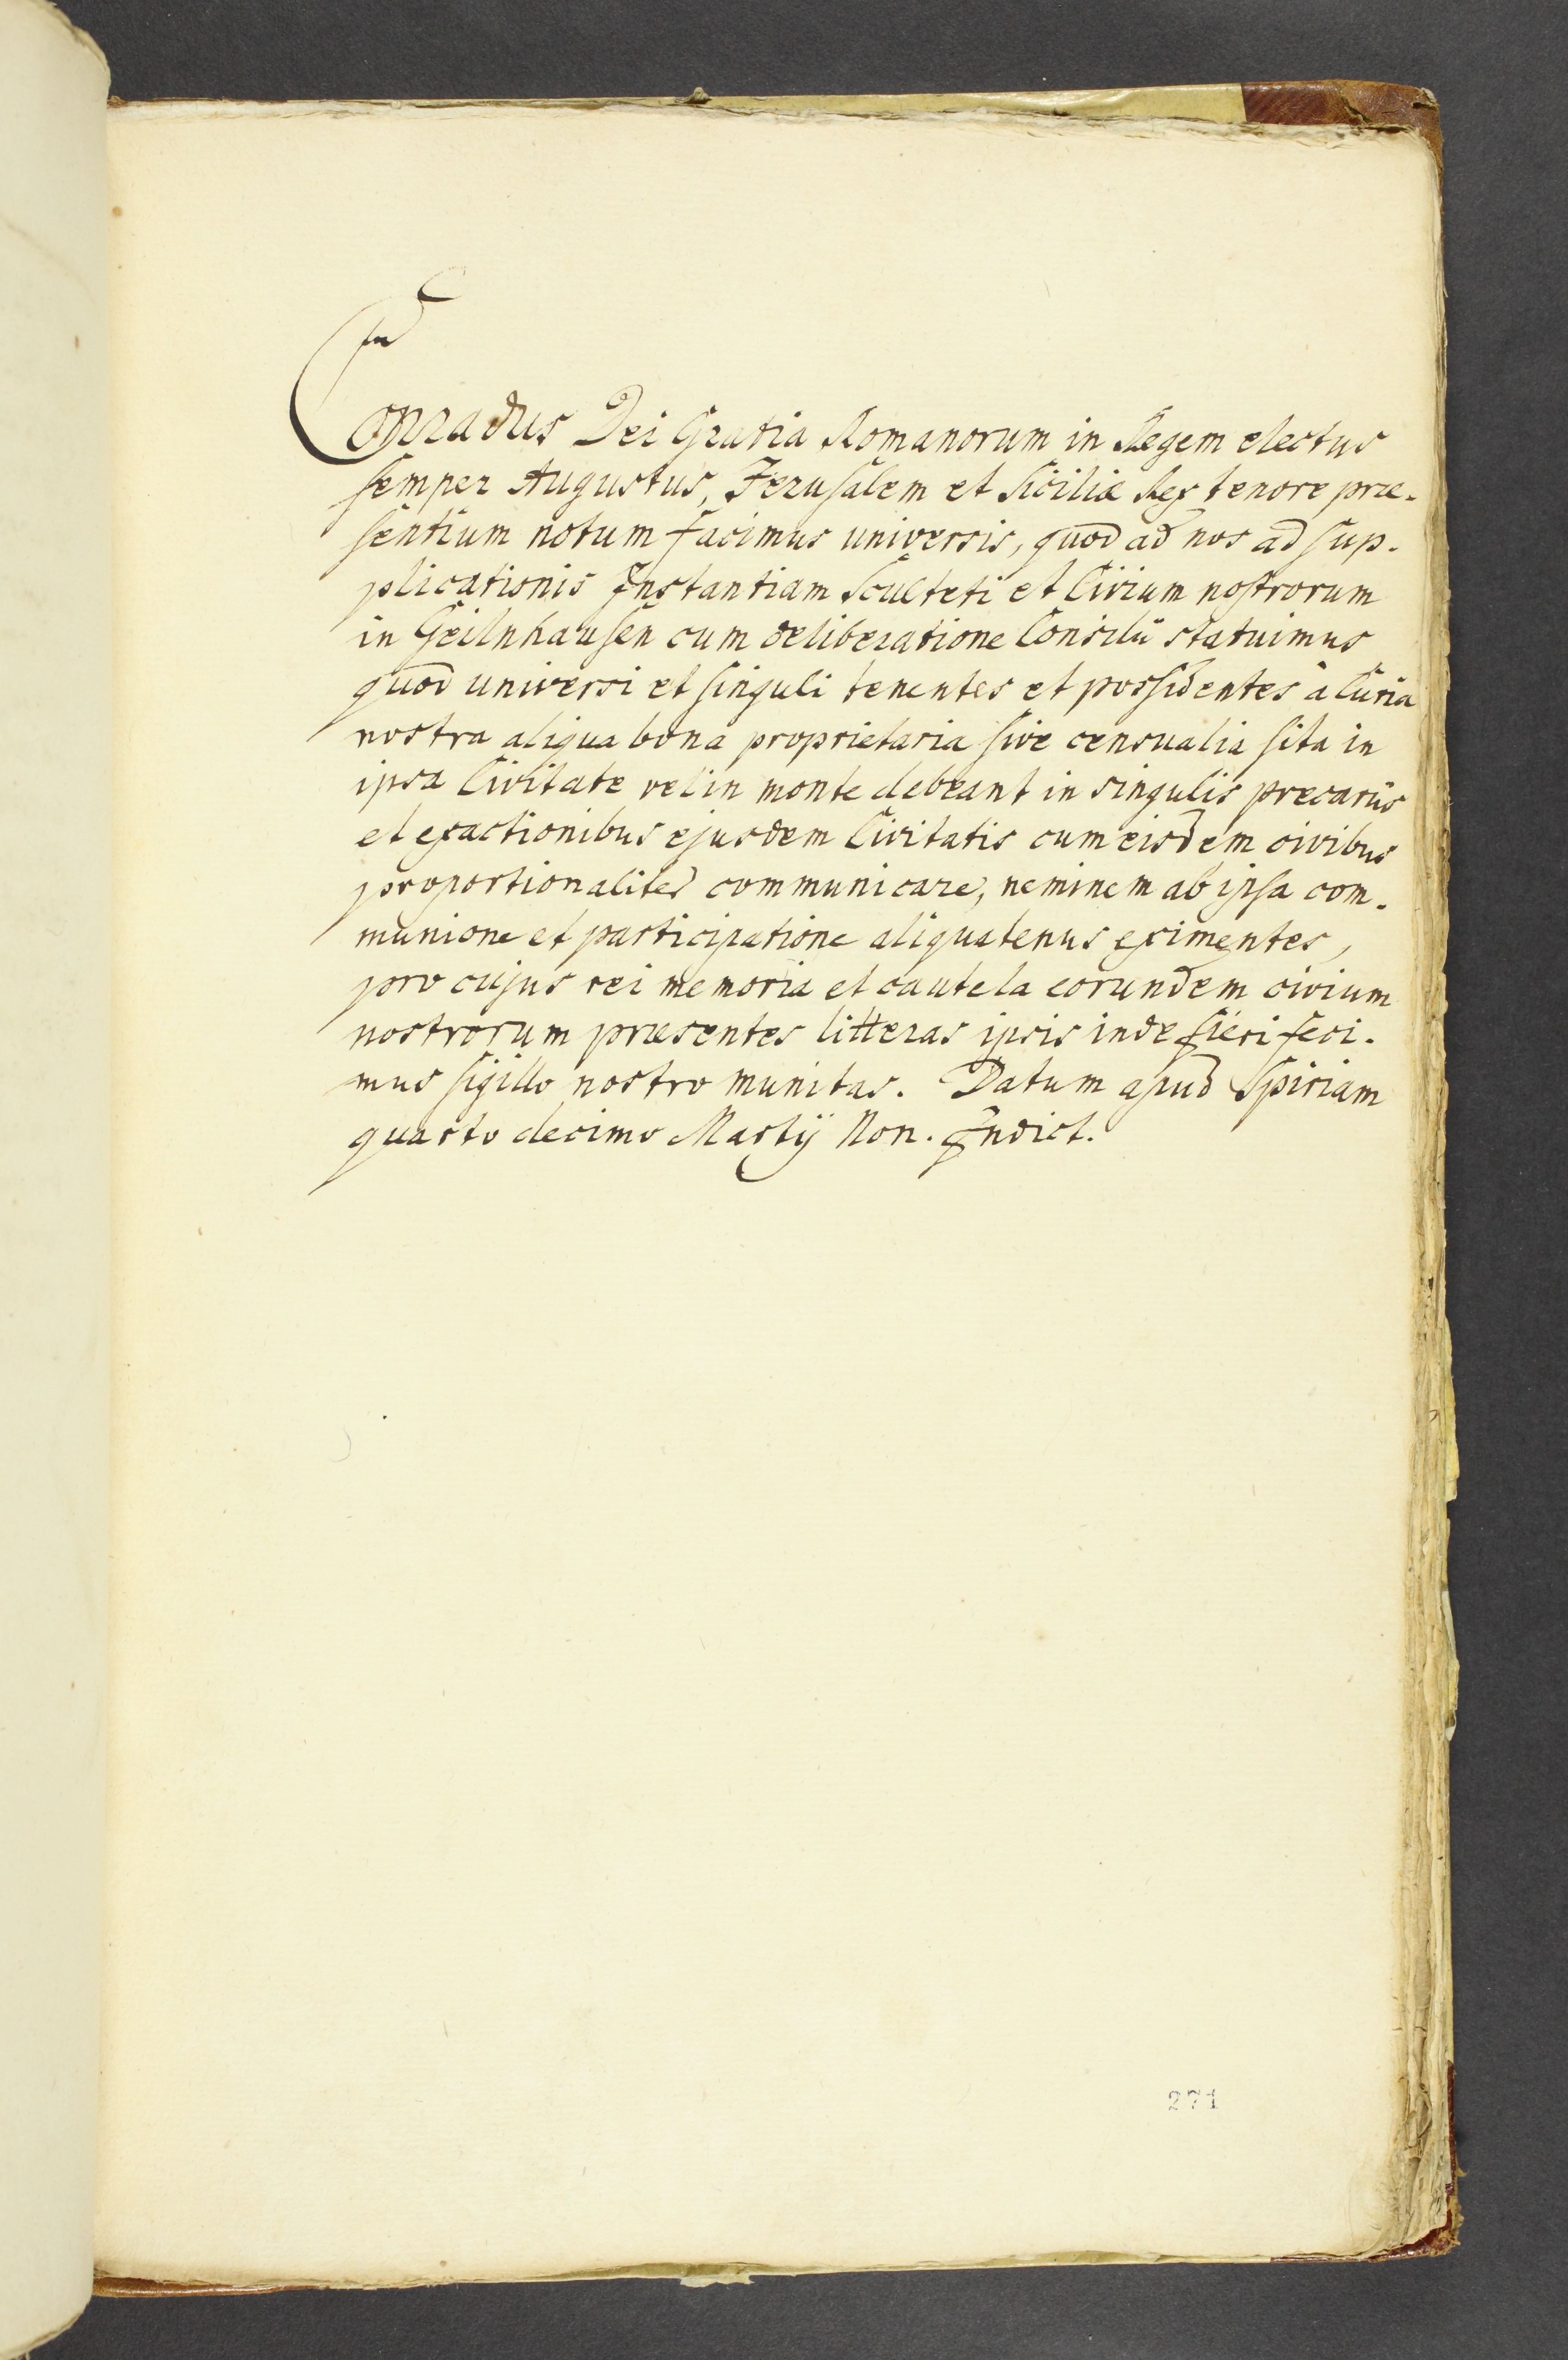 Conradus Dei Gratia Romanorum in Regem electus
semper Augustus, Jerusalem et Siciliæ Rex tenore præ-
sentium notum facimus universis, quod ad nos ad sup-
plicationis Instantiam Sculteti et Civium nostrorum
in Geilnhausen cum deliberatione Consilii statuimus
quod universi et singuli tenentes et possidentes à Curia
nostra aliqua bona proprietaria sive censualia sita in
ipsa Civitate vel in monte debeant in singulis precariis
et exactionibus ejusdem Civitatis cum eisdem civibus
proportionaliter communicare, neminem ab ipsa com-
munione et participatione aliquatenus eximentes,
pro cujus rei memoria et cautela eorundem civium
nostrorum præsentes litteras ipsis inde fieri feci-
mus sigillo nostro munitas. Datum apud Spiriam
quarto decimo Martij Non. Indict.
271